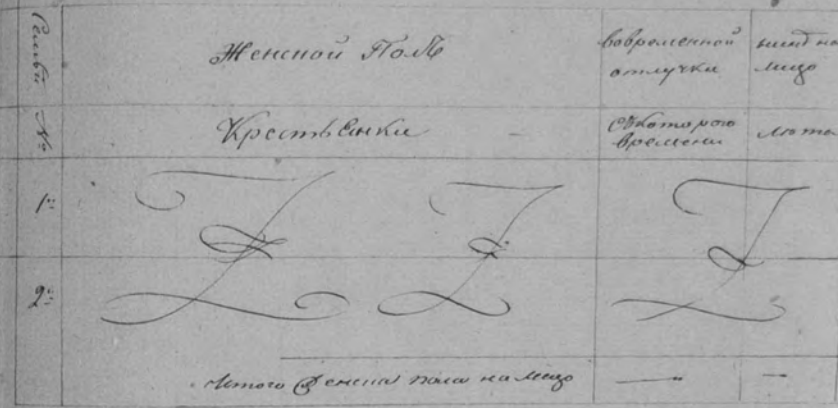 Семьи №
Женской Полъ
вовременной
отлучки
ныне на
лицо
Крестьянки
Съкотораго
времени
лета
1й
2й
Итого Женска пола на лицо